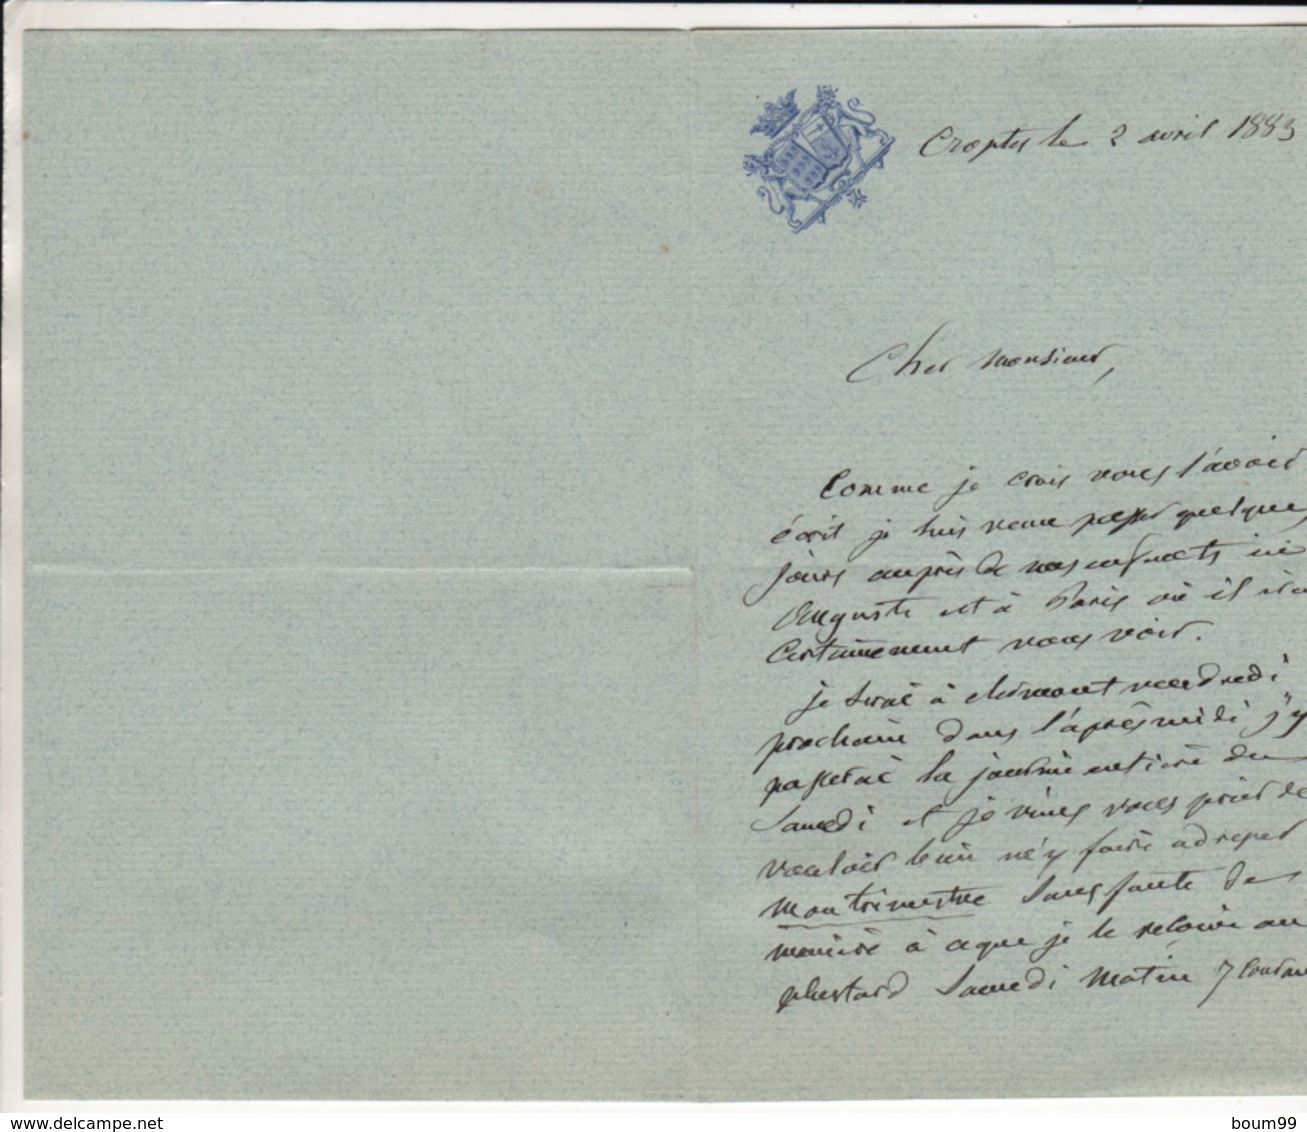 Croptes le 2 avril 1883
Cher Monsieur,
Comme je crois vous l'avoir
écrit je suis venue passer quelques
jours auprès de nos enfants ici
Auguste est à Paris où il ira
certainement vous voir.
je serai à clermont vendredi
prochain dans l'après midi j'y
passerai la journée entière du
Samedi et je viens vous prier de
vouloir bien m'y faire adresser
mon trimestre sans faute de
manière à ce que je le reçoive au
plus tard Samedi matin 7 Couran
www.delcampe.net
boum99